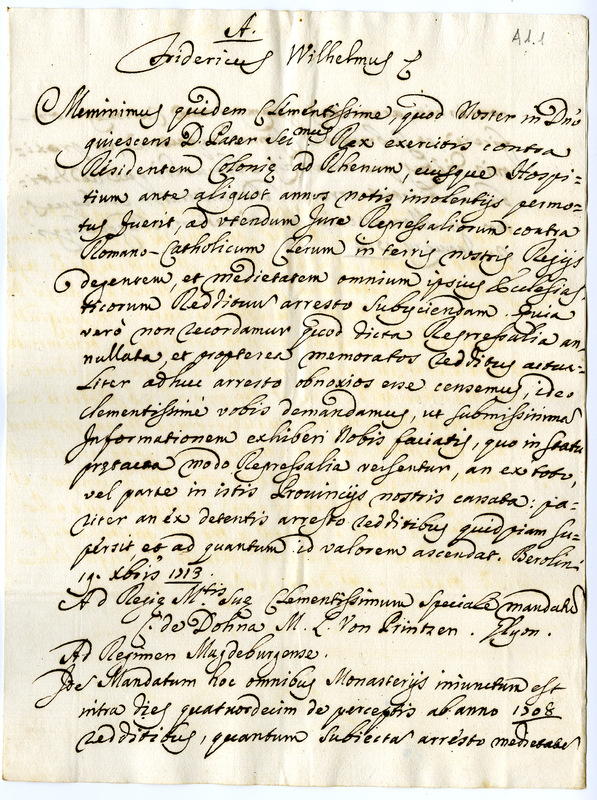 A.
A 1.1
Fridericus Wilhelmus
Meminimus quidem Clementissime, quod Noster in Dnō
quiescens D. Pater Sermus Rex exercitis contra
Residentem Colonię ad Rhenum, eiusque Hospi-
tium ante aliquot annos notis insolentijs permo-
tus fuerit, ad vtendum Jure Repressaliorum contra
Romano-Catholicum Clerum in terris nostris Regijs
degentem, et medietatem omnium ipsius Ecclesias-
ticorum Reddituum arresto subijciendam. Quia
verò non recordamur quod dicta Repressalia an-
nullata, et propterea memoratos redditus actua-
liter adhuc arresto obnoxios esse censemus, ideo
clementissimè vobis demandamus, ut submissimam
Informationem exhiberi Nobis faciatis, quo in statu
prętacta modo Repressalia versentur, an ex toto,
vel parte in istis Provincijs nostris cassata: pa-
riter an ex detentis arresto redditibus quidpiam su-
persit et ad quantum id valorem ascendat. Berolini
19. Xbris 1713.
Ad Regię Mtis Suę Clementissimum speciale mandatū
C. de Dohna M. L. Von Printzen. Ilgen.
Ad Regimen Magdeburgense.
Mandatum hoc omnibus Monasterijs iniunctum est
intra dies quatuordecim de perceptis ab anno 1708
redditibus, quantum subiecta arresto medietates